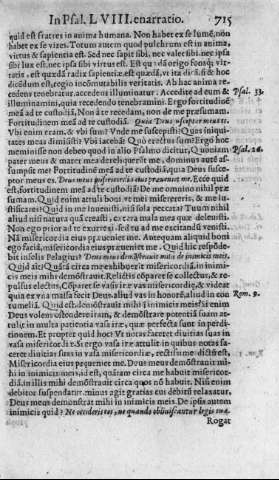 In Psal. LVIII. enarratio. 715
quid est fratres in anima humana. Non habet ex se lumẽ, non
habet ex se vires. Totum autem quod pulchrum est in anima,
virtus & sapientia est. Sed nec sapit sibi, nec valet sibi: nec ipsa
sibi lux est, nec ipsa sibi virtus est. Est quædã origo fonsq́; vir
tutis, est quædã radix sapientiæ: est quædã, vt ita dicã, si & hoc
dicẽdum est, regio incõmutabilis veritatis. Ab hac anima re
cedens tenebratur, accedens illuminatur. Accedite ad eum &
illuminamini, quia recedendo tenebramini. Ergo fortitudinẽ
meã ad te custodiã. Non à te recedam, non de me præsumam.
Fortitudinem meã ad te custodiã. Quia Deus susceptor meus es.
Vbi enim eram, & vbi sum? Vnde me suscepisti? Quas iniqui
tates meas dimisisti? Vbi iacebã? Quò erectus sum? Ergo hoc
meminisse non debeo: quod in alio Psalmo dicitur, Quoniam
pater meus & mater mea dereliquerũt me, dominus autẽ as-
sumpsit me? Fortitudinẽ meã ad te custodiã, quia Deus susce-
ptor meus es. Deus meus misericordia eius præueniet me. Ecce quid
est, fortitudinem meã ad te custodiã? De me omnino nihil præ
sumam. Quid enim attuli boni, vt mei misererêris, & me iu-
stificares? Quid in me inuenisti, nisi sola peccata? Tuum nihil
aliud nisi naturã quã creasti, cætera mala mea quæ deleuisti.
Non ego prior ad te exurrexi: sed tu ad me excitandũ venisti.
Nã misericordia eius præueniet me. Antequam aliquid boni
ego faciã, misericordia eius præueniet me. Quid hîc respõde-
bit infelix Pelagius? Deus meus demõstrauit mihi in inimicis meis.
Quid ait: Quãtã circa me exhibuerit misericordiã, in inimi-
cis meis mihi demõstrauit. Relictis cõparet se collectus, & re-
pulsis electus. Cõparet se vasis iræ vas misericordiæ, & videat
quia ex vna massa fecit Deus aliud vas in honorẽ, aliud in con
tumeliã. Quid est, demonstrauit mihi in inimicis meis? Si enim
Deus volens ostendere iram, & demonstrare potentiã suam at
tulit in multa patientia vasa iræ, quæ perfecta sunt in perdi-
tionem. Et propter quid hoc? Vt notas faceret diuitias suas in
vasa misericordiæ. Si ergo vasa iræ attulit in quibus notas fa
ceret diuitias suas in vasa misericordiæ, rectissimè dictũ est,
Misericordia eius præueniet me. Deus meus demõstrauit mi-
hi in inimicis meis, id est, quãtam circa me habuit misericor-
diã, in illis mihi demõstrauit circa quos nõ habuit. Nisi enim
debitor suspendatur, minus agit gratias cui debitũ relaxatur.
Deus meus demonstrat mihi in inimicis meis. De ipsis autem
inimicis quid? Ne occideris eos, ne quando obliuiscantur legis tuæ.
Rogat
Psal. 33.
Psal. 26.
Rom. 9.